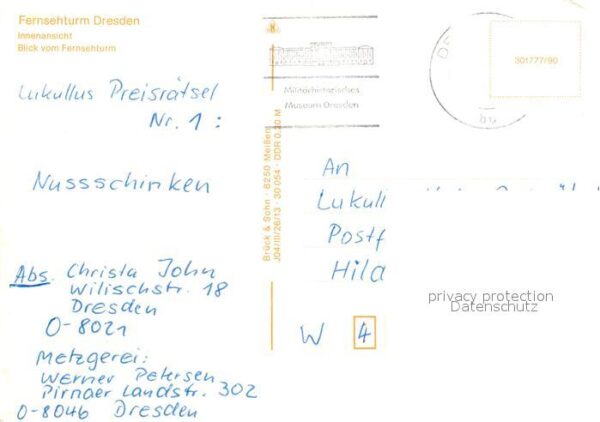 Fernsehturm Dresden
Innenansicht
Blick vom Fernsehturm
Lukullus Preisrätsel
Nr. 1:
Nussschinken
Abs. Christa John
Wilischstr. 18
Dresden
O-8021
Metzgerei:
Werner Petersen
Pirnaer Landstr. 302
O-8046 Dresden
Brück & Sohn · 8250 Meißen
J04/III/26/13 · 30 054 · DDR 0,20 M
Militärhistorisches
Museum Dresden
301777/90
An
Lukull
Postf
Hila
W 4
privacy protection
Datenschutz